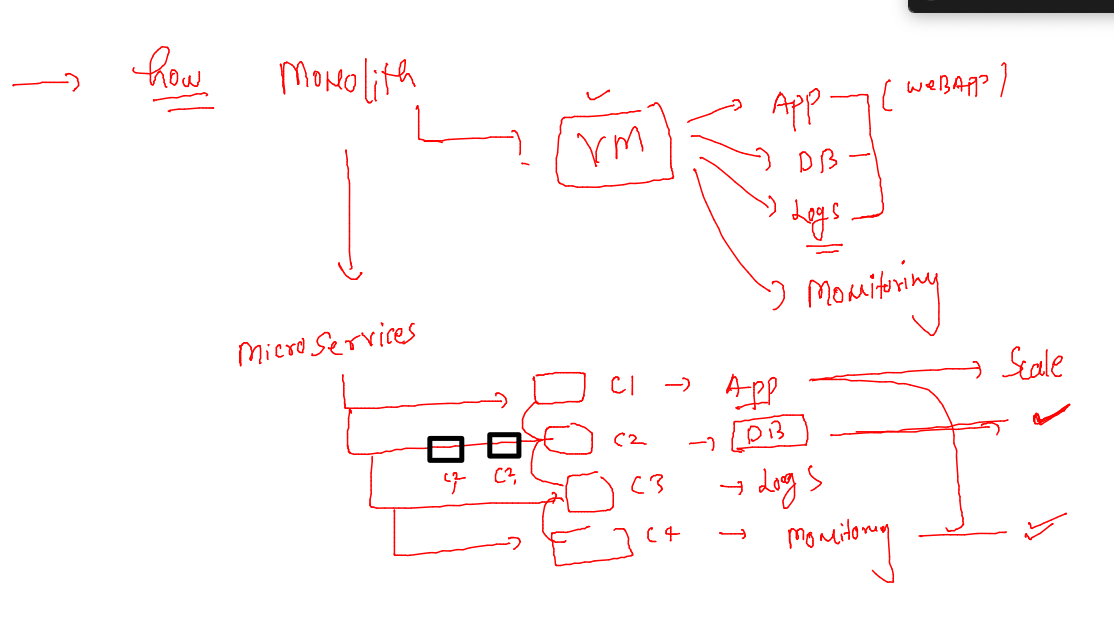 how Monolith
VM
App (WEBAPP)
DB
Logs
Monitoring
Microservices
C1 → App → Scale
C2 → DB
C2 C2
C3 → Logs
C4 → Monitoring